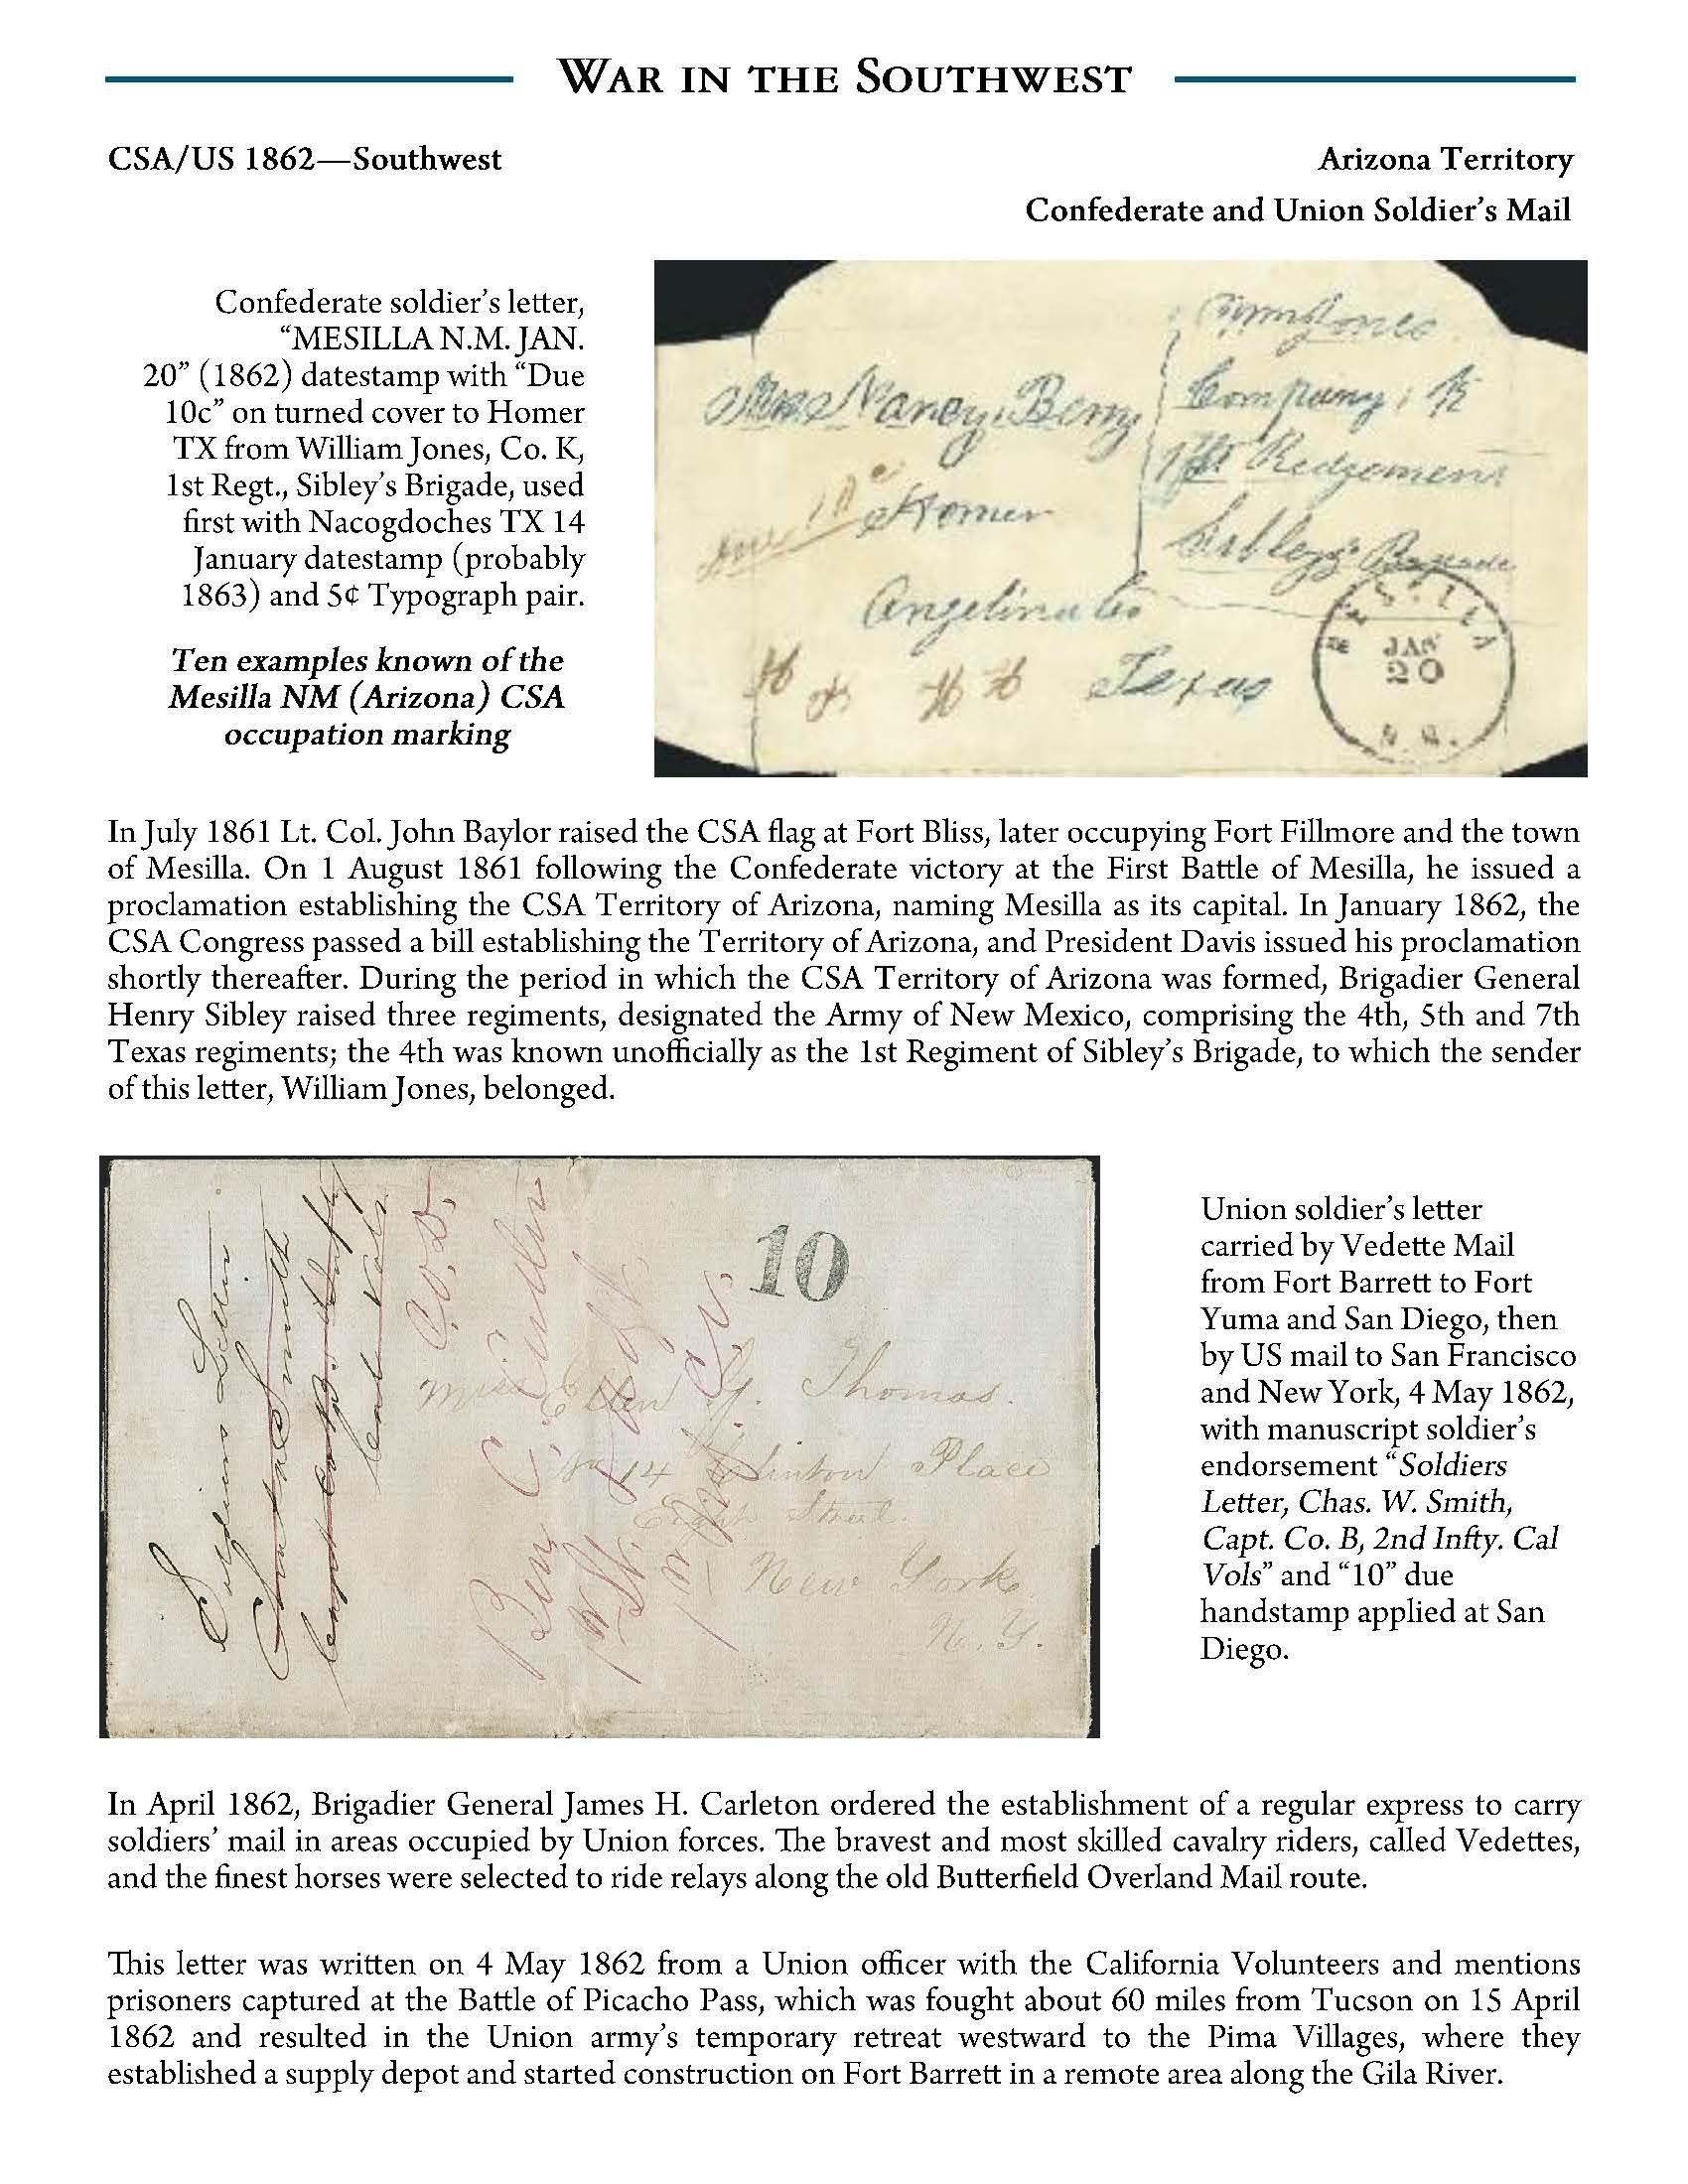 WAR IN THE SOUTHWEST
CSA/US 1862—Southwest
Arizona Territory
Confederate and Union Soldier's Mail
Confederate soldier's letter,
“MESILLA N.M. JAN.
20” (1862) datestamp with “Due
10c” on turned cover to Homer
TX from William Jones, Co. K,
1st Regt., Sibley's Brigade, used
first with Nacogdoches TX 14
January datestamp (probably
1863) and 5¢ Typograph pair.
Ten examples known of the
Mesilla NM (Arizona) CSA
occupation marking
Wm Jones
Company K
1st Redgement
Sibleys Brigade
Mrs Nancy Berry
Due 10c
Homer
Angelina Co
Texas
MESILLA
JAN
20
N. M.
In July 1861 Lt. Col. John Baylor raised the CSA flag at Fort Bliss, later occupying Fort Fillmore and the town
of Mesilla. On 1 August 1861 following the Confederate victory at the First Battle of Mesilla, he issued a
proclamation establishing the CSA Territory of Arizona, naming Mesilla as its capital. In January 1862, the
CSA Congress passed a bill establishing the Territory of Arizona, and President Davis issued his proclamation
shortly thereafter. During the period in which the CSA Territory of Arizona was formed, Brigadier General
Henry Sibley raised three regiments, designated the Army of New Mexico, comprising the 4th, 5th and 7th
Texas regiments; the 4th was known unofficially as the 1st Regiment of Sibley's Brigade, to which the sender
of this letter, William Jones, belonged.
Soldiers Letter
Chas W Smith
Capt Co B. 2 Infty
Cal Vols
10
Miss Ellen G. Thomas.
No 14 Clinton Place
Eighth Street.
New York.
N. Y.
Union soldier's letter
carried by Vedette Mail
from Fort Barrett to Fort
Yuma and San Diego, then
by US mail to San Francisco
and New York, 4 May 1862,
with manuscript soldier's
endorsement “Soldiers
Letter, Chas. W. Smith,
Capt. Co. B, 2nd Infty. Cal
Vols” and “10” due
handstamp applied at San
Diego.
In April 1862, Brigadier General James H. Carleton ordered the establishment of a regular express to carry
soldiers' mail in areas occupied by Union forces. The bravest and most skilled cavalry riders, called Vedettes,
and the finest horses were selected to ride relays along the old Butterfield Overland Mail route.
This letter was written on 4 May 1862 from a Union officer with the California Volunteers and mentions
prisoners captured at the Battle of Picacho Pass, which was fought about 60 miles from Tucson on 15 April
1862 and resulted in the Union army's temporary retreat westward to the Pima Villages, where they
established a supply depot and started construction on Fort Barrett in a remote area along the Gila River.